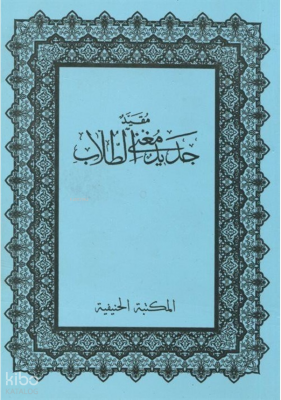 مقيد
جديد مغني الطلاب
المكتبة الحنيفية
kibo